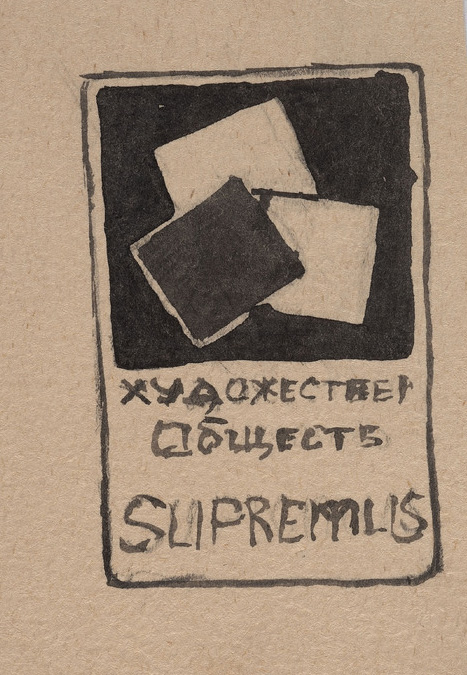 ХУДОЖЕСТВЕН
ОБЩЕСТВ
SUPREMUS